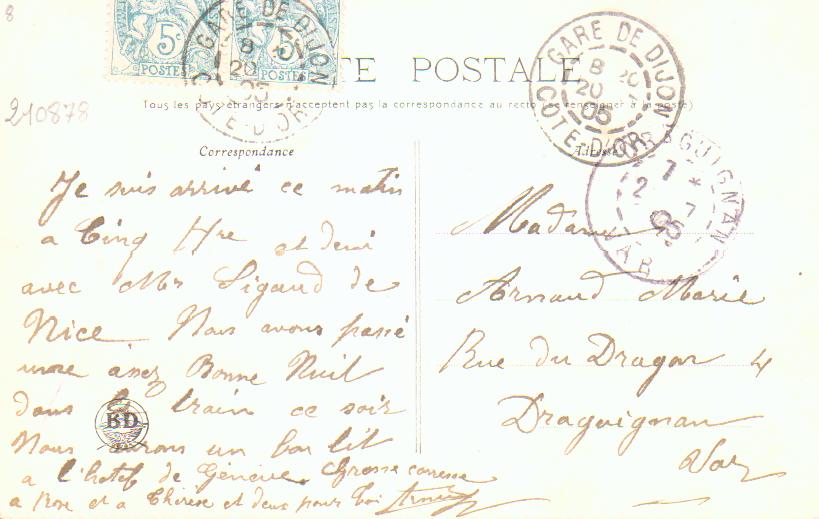 8
210878
5c
POSTES
5c
POSTES
GARE DE DIJON
8
20
05
COTE-D'OR
CARTE POSTALE
Tous les pays étrangers n'acceptent pas la correspondance au recto (se renseigner à la poste)
GARE DE DIJON
8
20
05
COTE-D'OR
DRAGUIGNAN
VAR
05
Correspondance
Adresse
Je suis arrivé ce matin
a Cinq Hre et demi
avec Mr Sigaud de
Nice Nous avons passé
une assez Bonne Nuit
dans le train ce soir
BD
Nous aurons un bon lit
a l'hotel de Genève. Grosse caresse
a Rose et a Thérèse et deux pour toi
Madame
Arnaud Marie
Rue du Dragon 4
Draguignan
Var